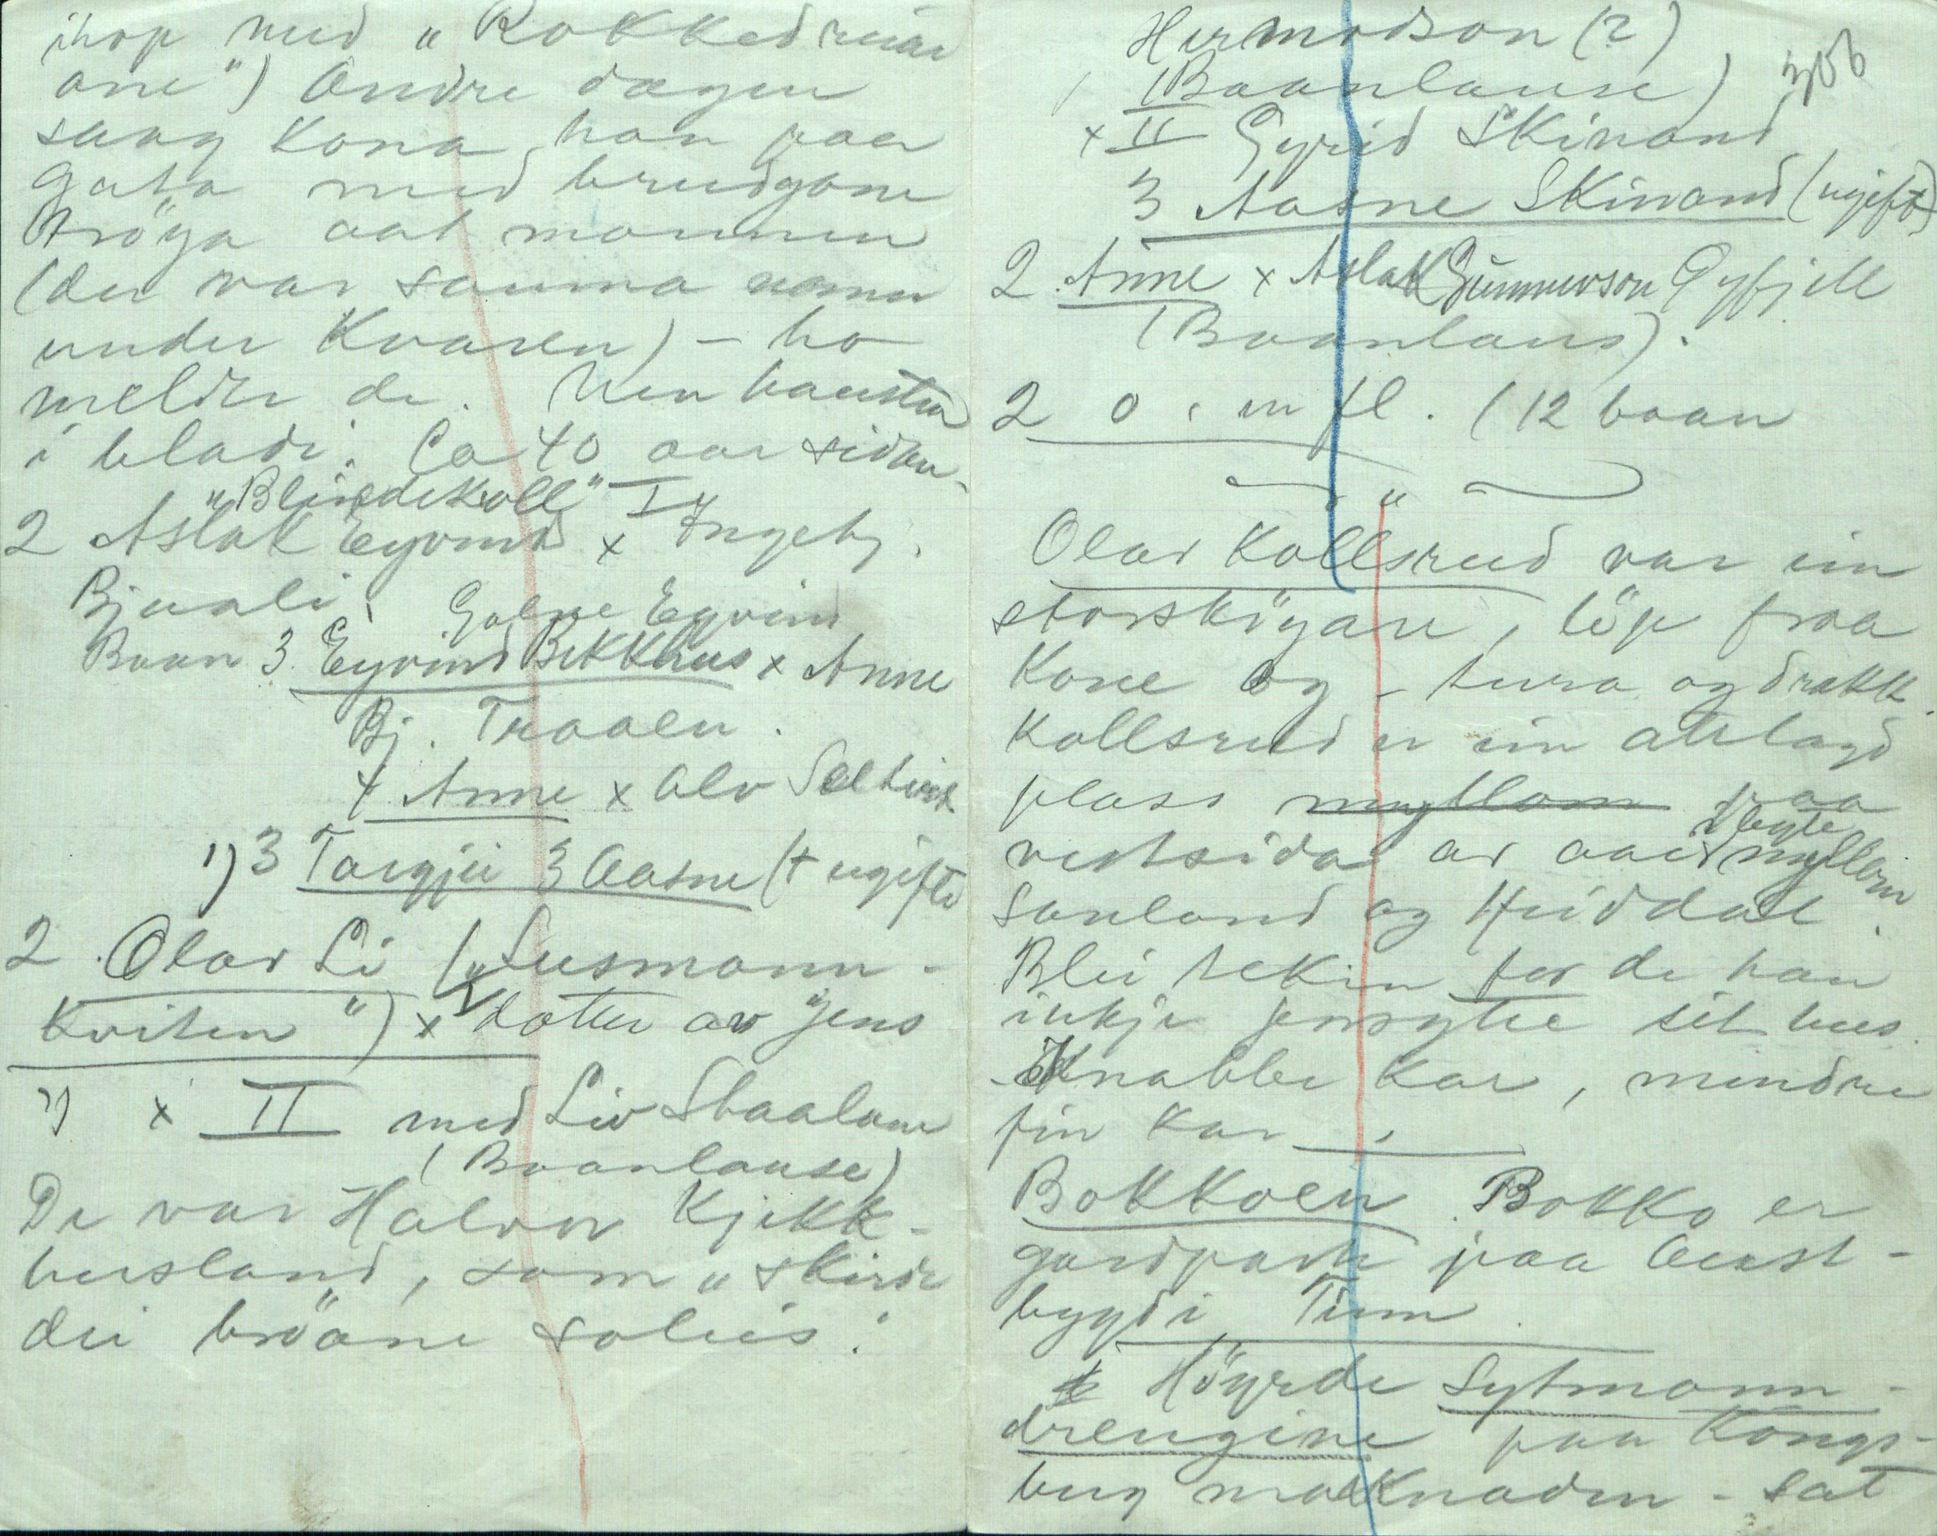 ihop med "Rokkedreiar
ane") Andre dagen
saag Kona han paa
gata med brudgom
trøya aat mannen
(der var sauma
under Kvaren) - ho
melder de. Men
i bladi. Ca 40 aar sidan
"Blindekoll" I
2 Aslak Eyvind x Ingebj.
Bjuali. Galne Eyvind
Baan 3 Eyvind Bekkhus x Anne
Bj. Traaen.
4 Anne x Alv
1) 3 Targjei 3 Aasne († ugifte
2 Olav Li ("Lusmann-
Kviten") x dotter av Jens
1) x II med Liv Staalane
(Baanlause)
De var Halvor Kjekk-
husland, som "skirde
dei brøane soleis:
Hermodson (?)
306
I (Baanlause)
x II Gyrid Skinand
3 Aasne Skinand (ugift)
2 Anne x Aslak Gunnerson Gyfjell
(Baanlaus).
2 0, m fl. (12 baan
"
Olav Kollsrud var ein
storskøyare, løp fraa
Kone og - tura og drakk.
Kollsrud er ein atlagd
plass myllom paa
vestsida av aaer myllom
Sauland og Heiddal.
Blei tekin for de han
inkje forsytte sit hus.
Knabbe Kar, mindre
fin Kar.
Bokkoen. Bokko er
gardpart paa Aust-
bygdi Tinn.
Høyrde Sytmann-
drengine paa Kongs-
berg marknaden - sat